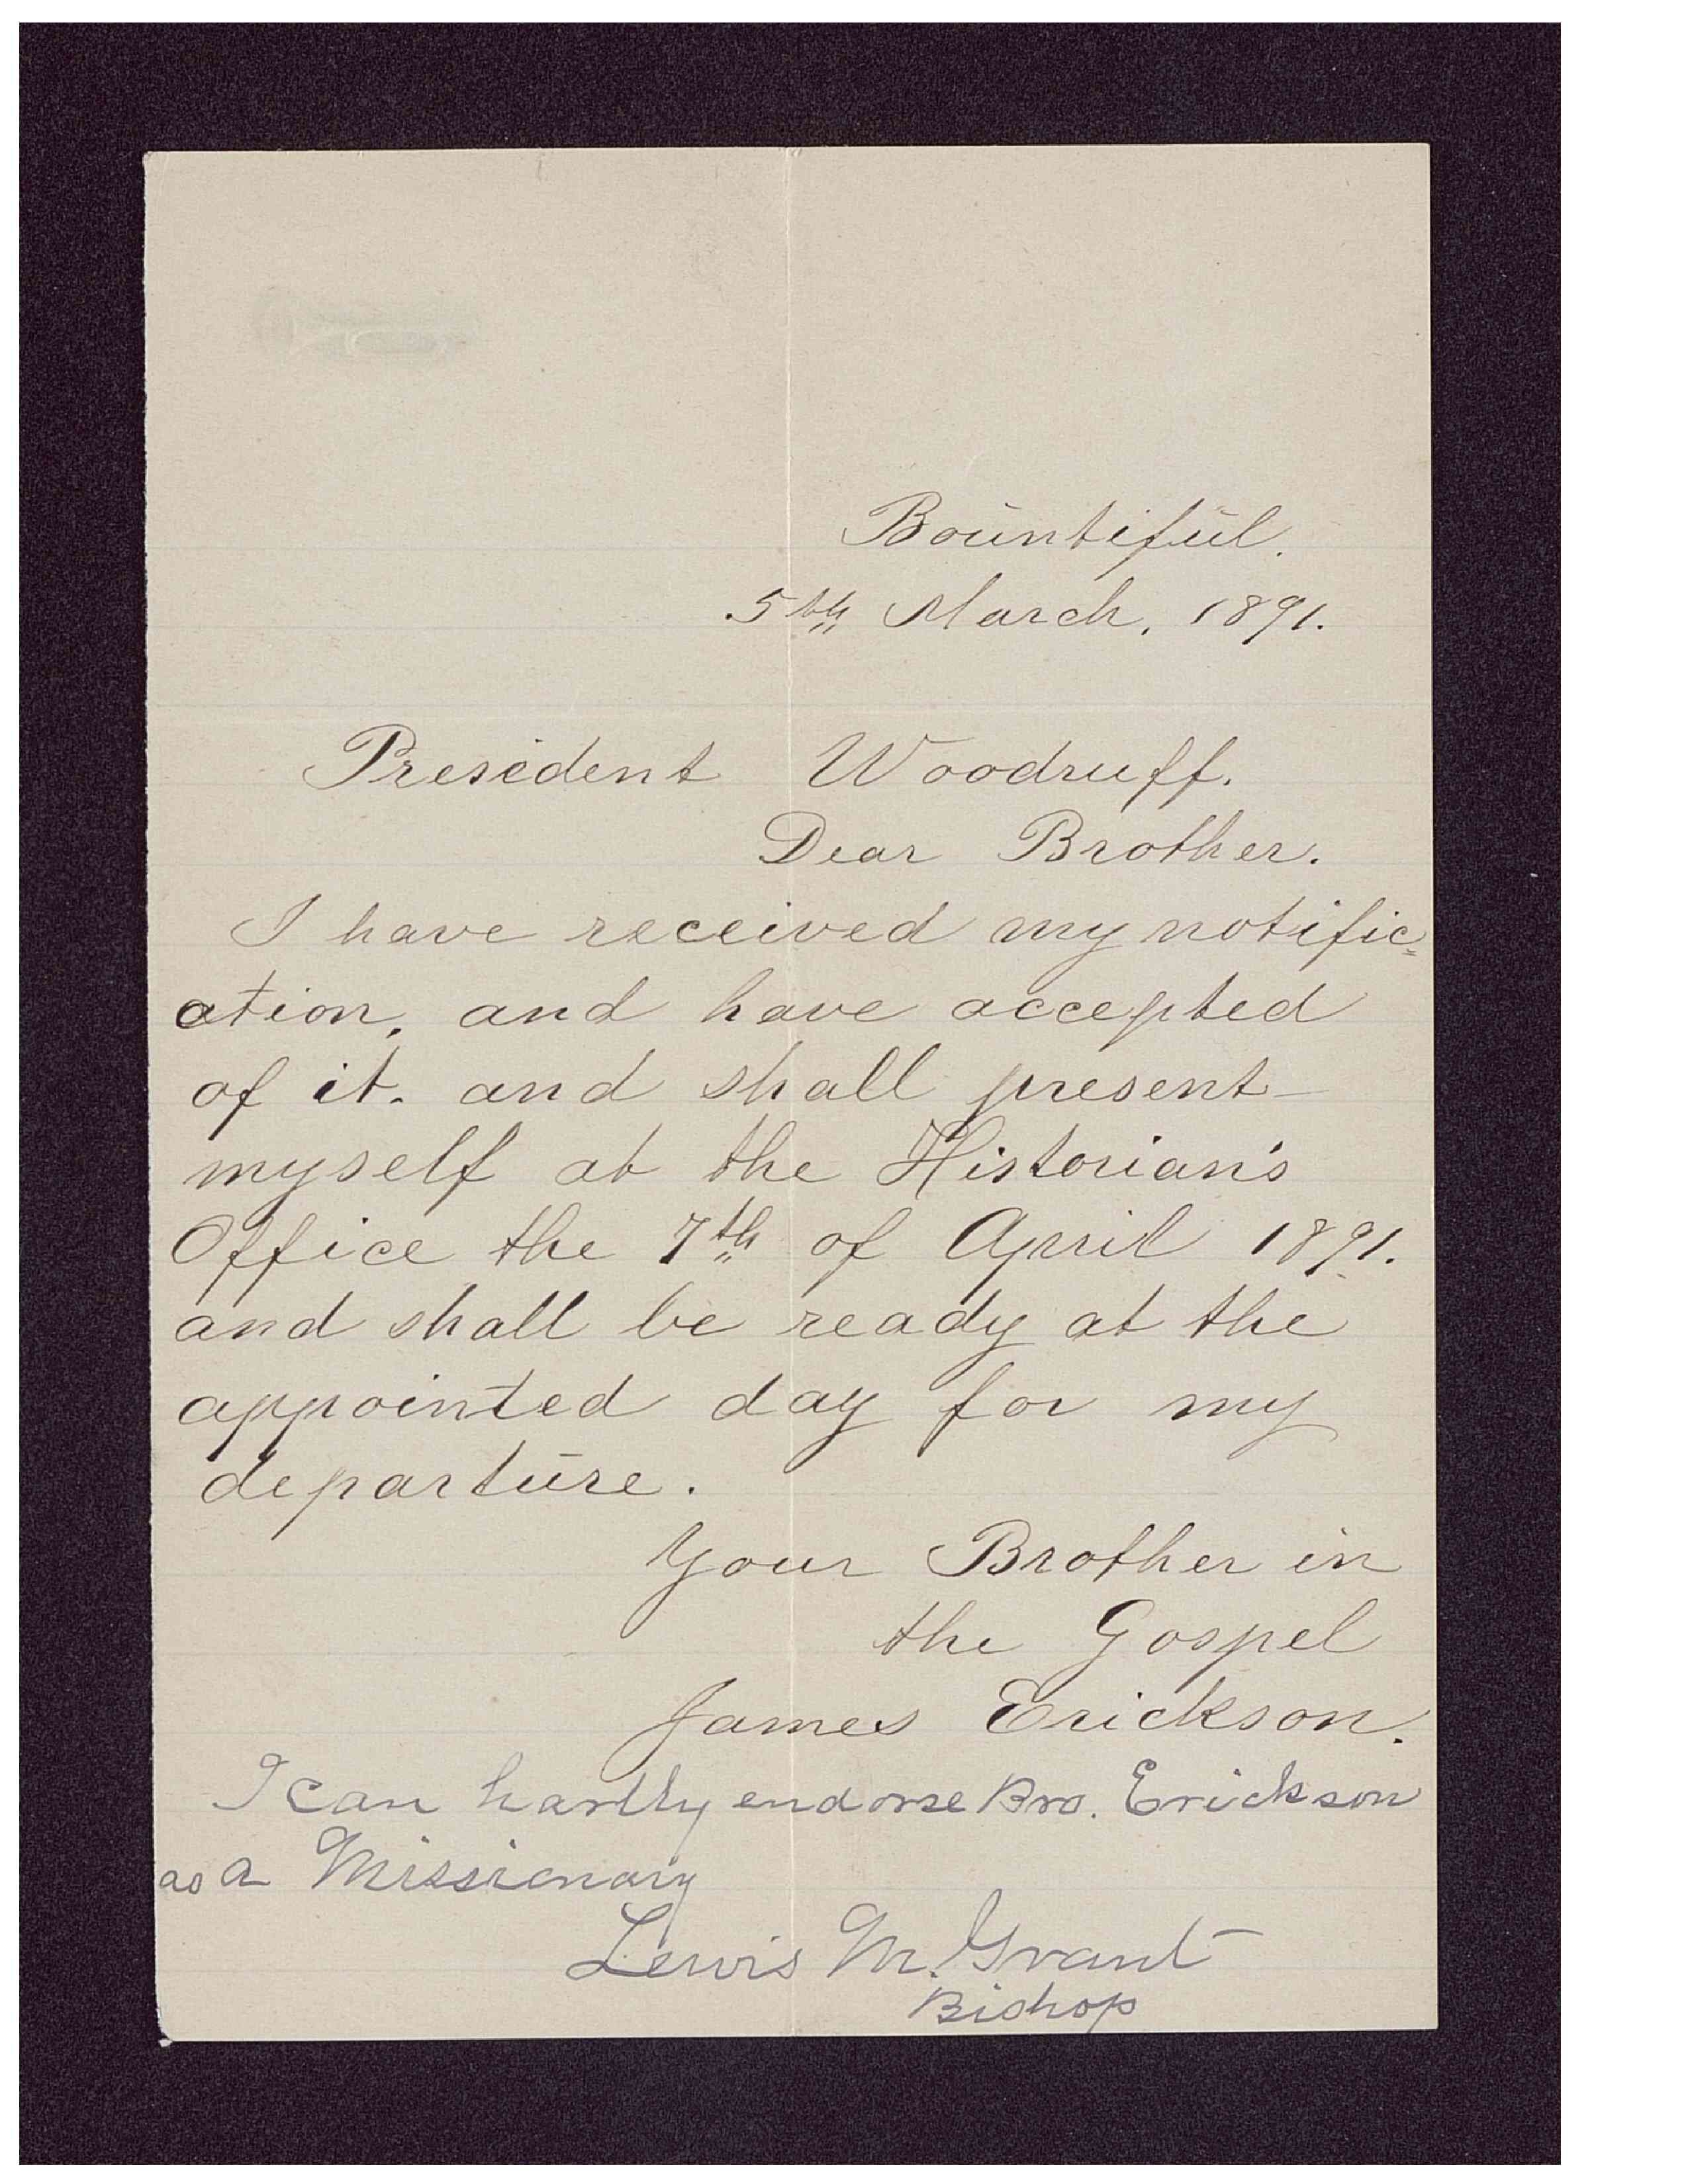 Bountiful.
5th March, 1891.
President Woodruff.
Dear Brother.
I have received my notific=
ation, and have accepted
of it. and shall present
myself at the Historian's
Office the 7th of April 1891.
and shall be ready at the
appointed day for my
departure.
Your Brother in
the Gospel
James Erickson.
I can hartly endorse Bro. Erickson
as a Missionary
Lewis M. Grant
Bishop